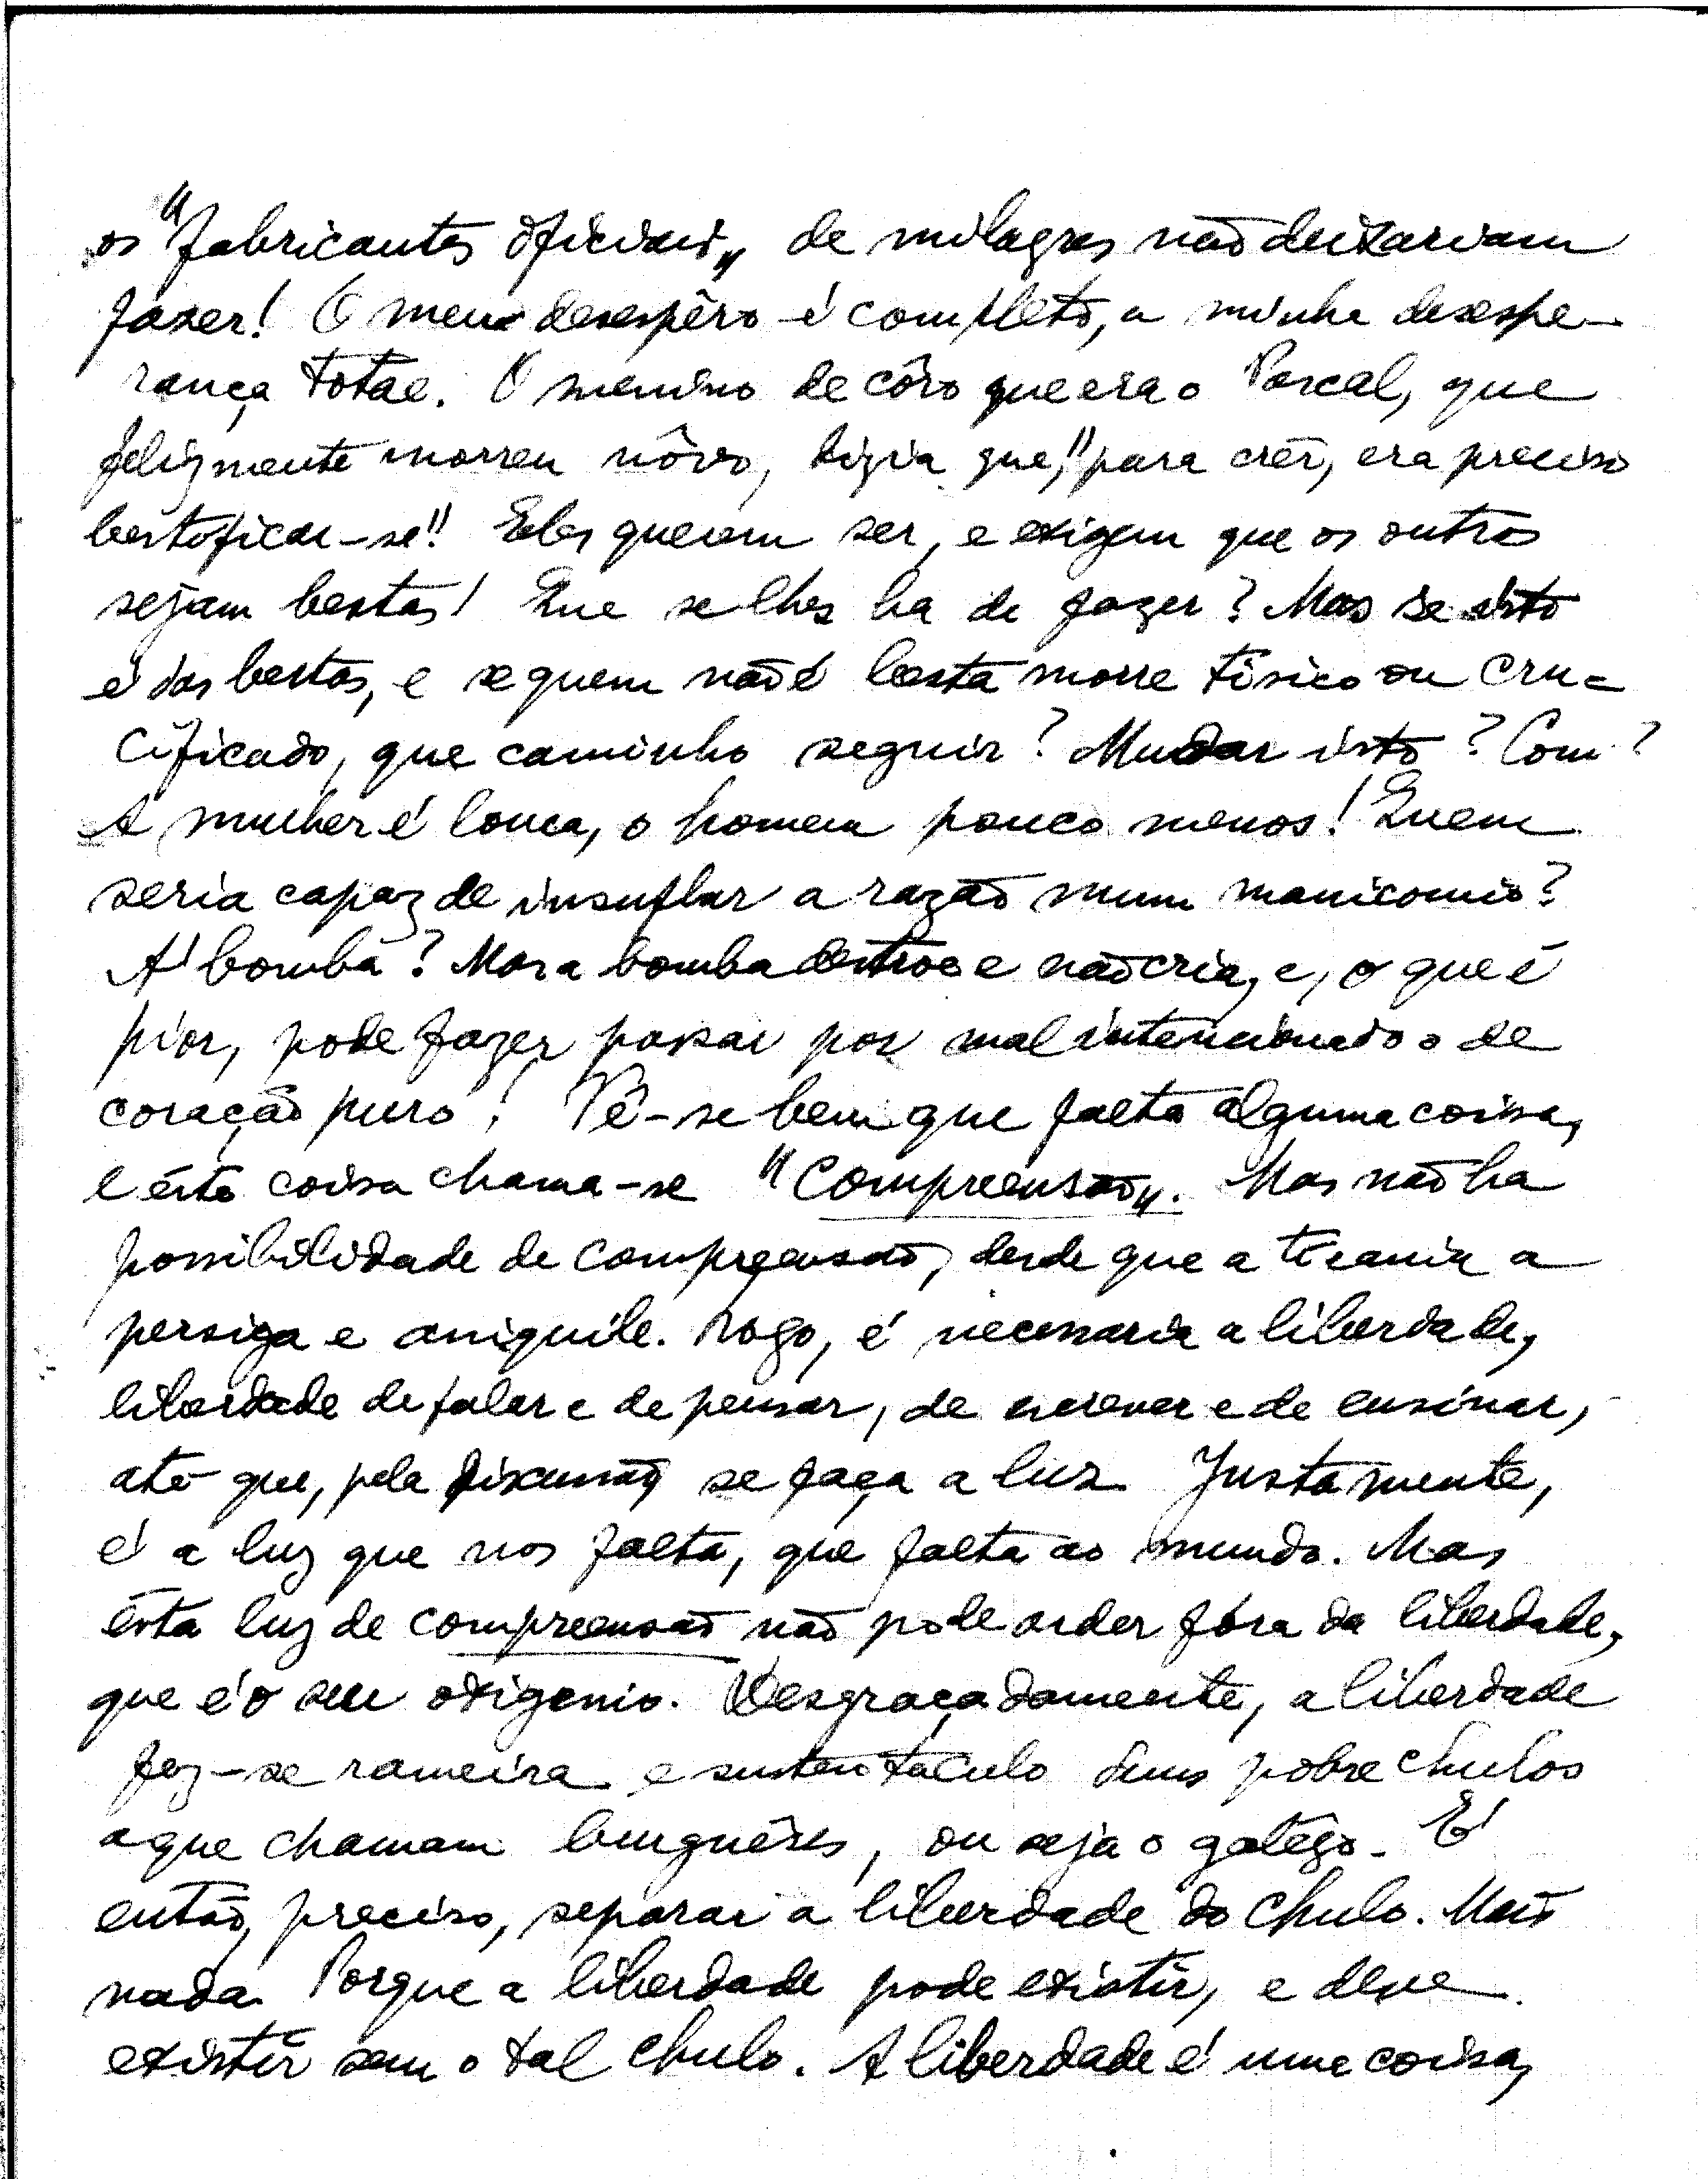 os "fabricantes oficiais„ de milagres não deixariam
fazer! O meu desespêro é completo, a minha desespe-
rança total. O menino de côro que era o Pascal, que
felizmente morreu nôvo, dizia que, "para crêr, era preciso
bestificar-se"! Eles querem ser, e exigem que os outros
sejam bestas! Que se lhes ha de fazer? Mas se isto
é das bestas, e se quem não é besta morre tísico ou cru-
cificado, que caminho seguir? Mudar isto? Com?
A mulher é louca, o homem pouco menos! Quem
seria capaz de insuflar a razão num manicomio?
A' bomba? Mas a bomba destroe e não cria, e, o que é
pior, pode fazer passar por mal intencionado o de
coração puro! Vê-se bem que falta alguma coisa,
e ésta coisa chama-se "Compreensão„. Mas não ha
possibilidade de compreensão, desde que a tirania a
persiga e aniquile. Logo, é necessaria a liberdade,
liberdade de falar e de pensar, de escrever e de ensinar,
até que, pela discussão se faça a luz. Justamente,
é a luz que nos falta, que falta ao mundo. Mas
ésta luz de compreensão não pode arder fóra da liberdade,
que é o seu oxigenio. Desgraçadamente, a liberdade
fez-se rameira e sustentaculo duns pobre chulos
a que chamam burguêses, ou seja o galêgo. É
então, preciso, separar a liberdade do chulo. Mais
nada. Porque a liberdade pode existir, e deve
existir sem o tal chulo. A liberdade é uma coisa,